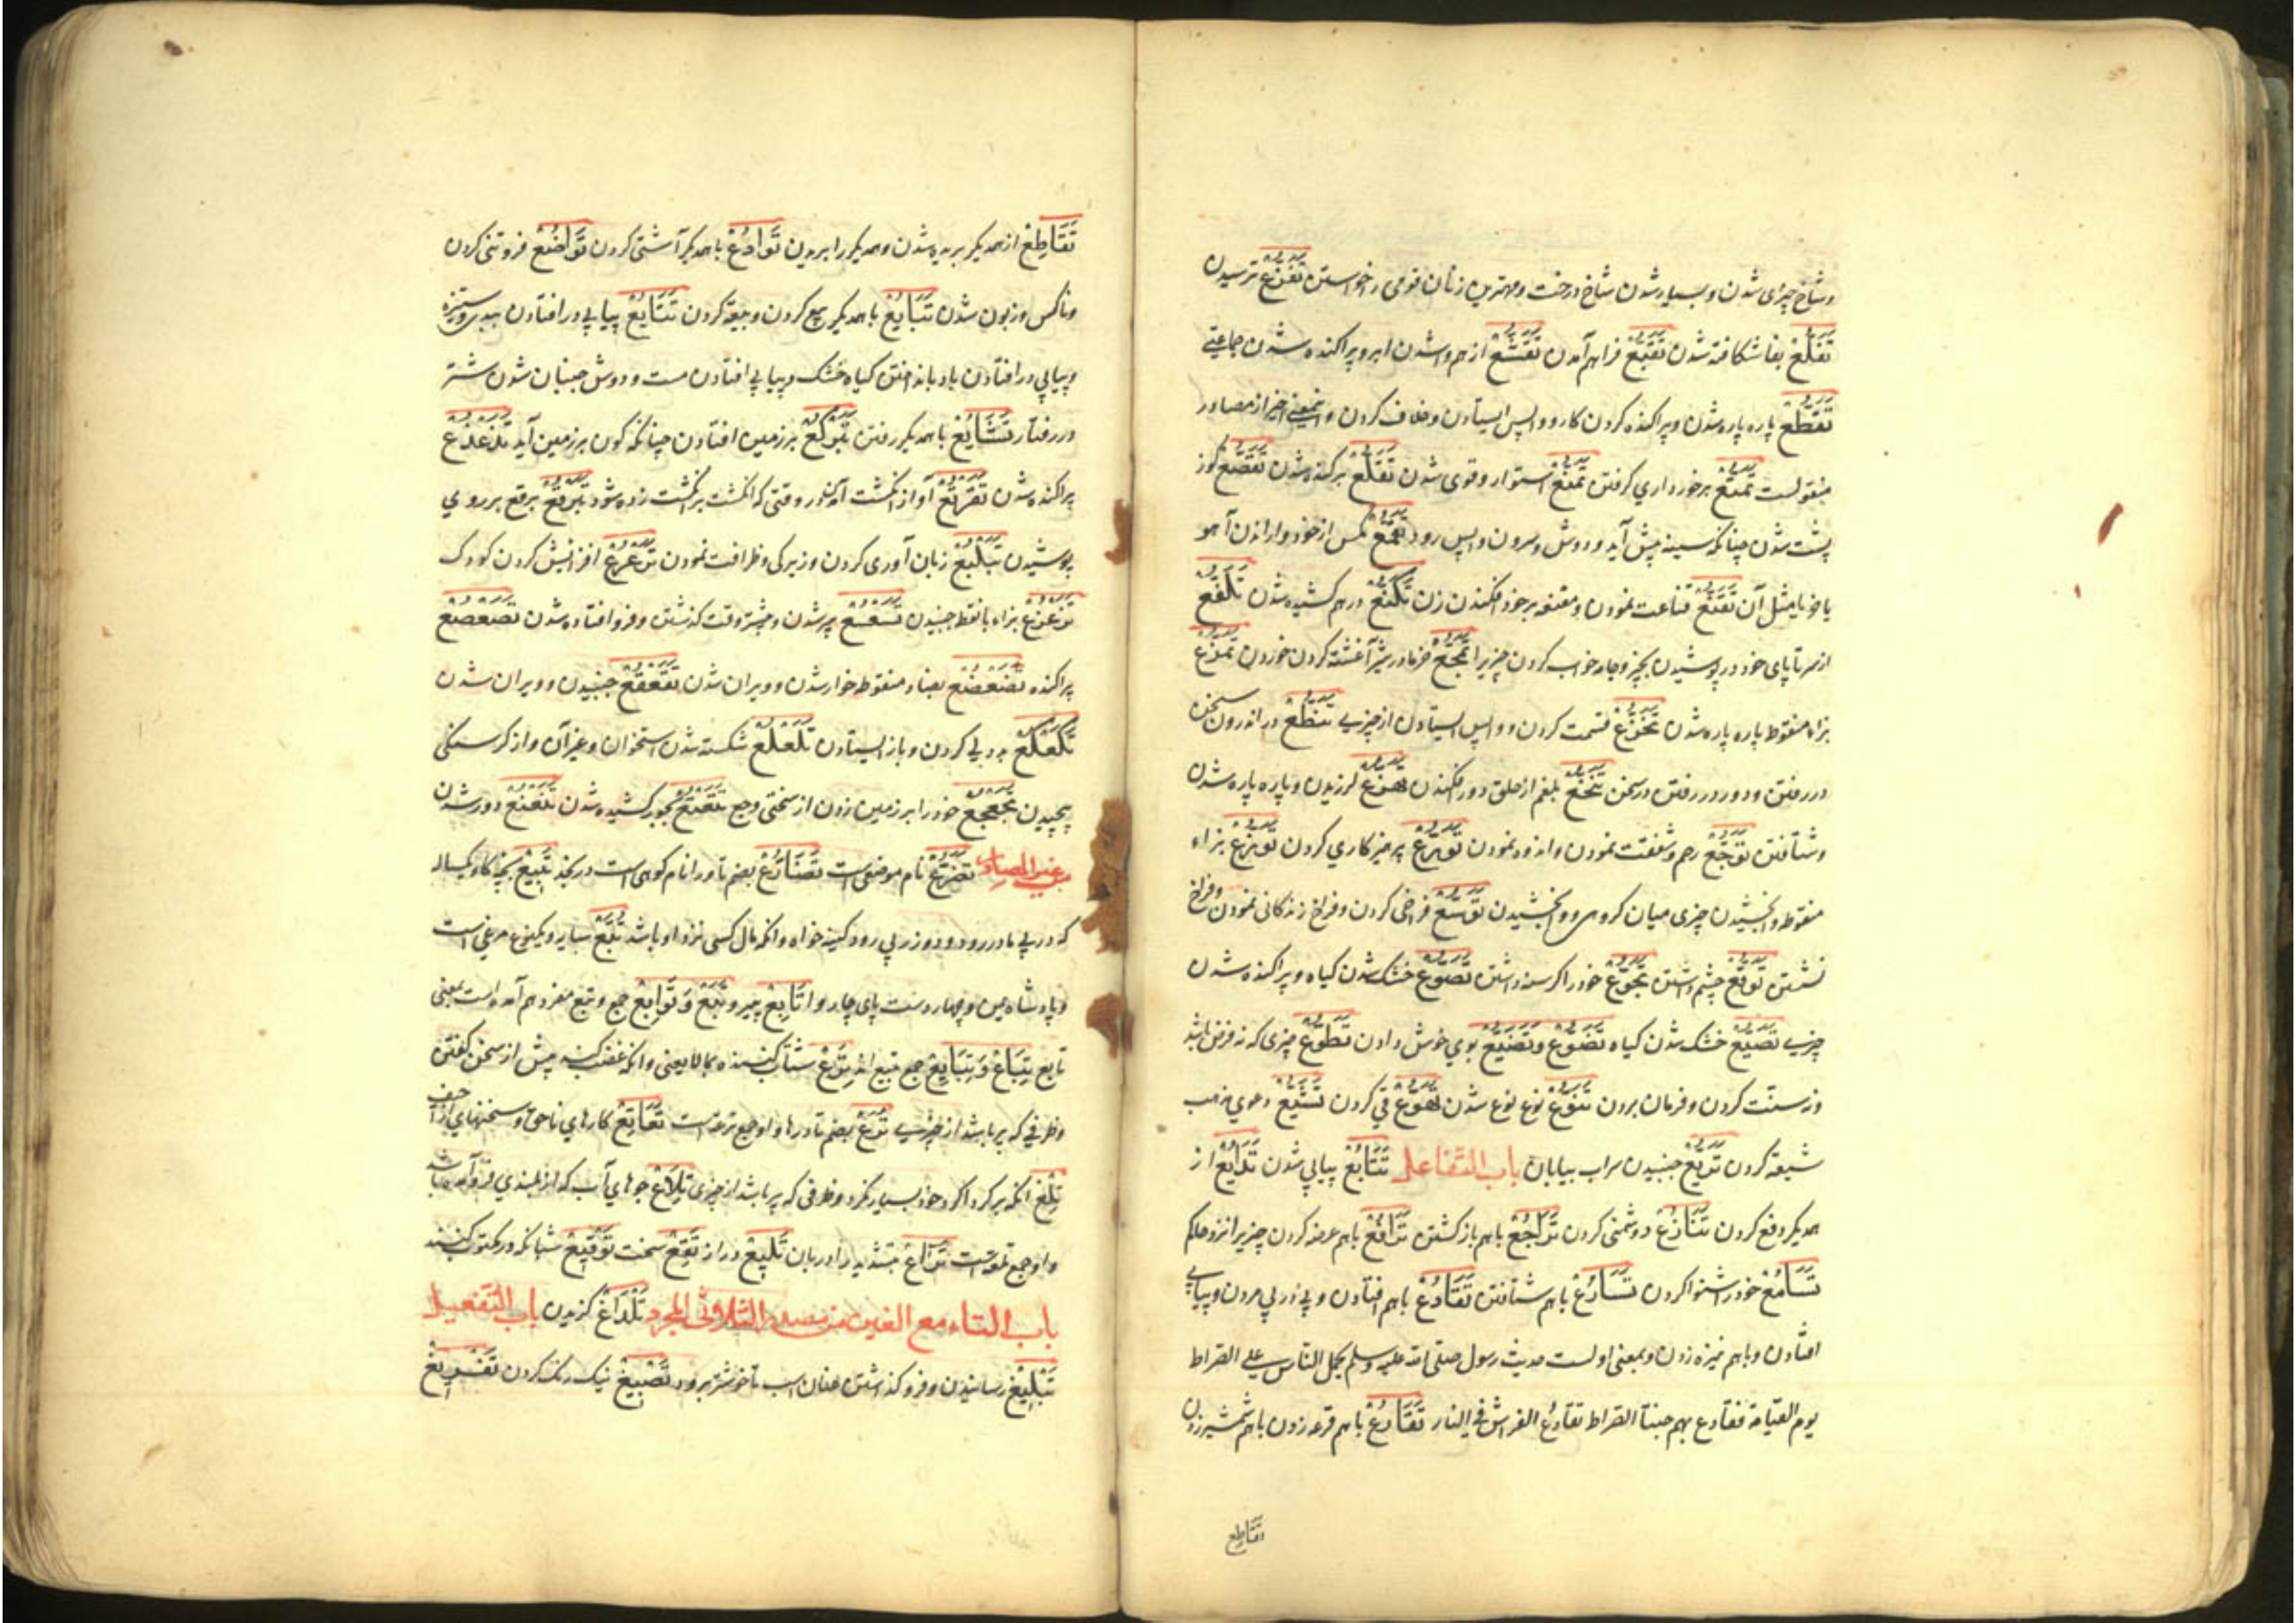 وشاخ چرای شدن و بسیار شدن شاخ درخت و مهترین زنان قومی را خواستن تَفَزُّع ترسیدن
تَفَلُّع بفا شکافته شدن تَقَبُّع فراهم آمدن تَقَشُّع از هم واشدن ابر و پراکنده شدن جماعتی
تَقَطُّع پاره پاره شدن و پراکنده کردن کار و واپس ایستادن و خلاف کردن و این معنی اخیر از مصادر
منقولست تَمَتُّع برخورداری گرفتن تَمَنُّع استوار و قوی شدن تَقَلُّع برکنده شدن تَقَصُّع کوز
پشت شدن چنانکه سینه پیش آید و دوش و سرون واپس رود تَقَمُّع مگس از خود وا راندن آهو
یا خر یا مثل آن تَقَنُّع قناعت نمودن و مقنعه بر خود افکندن زن تَکَنُّع درهم کشیده شدن تَلَفُّع
از سر تا پای خود در پوشیدن بچیز و جامه خواب کردن چیزیرا تَمَجُّع خرما در شیر آغشته کردن خوردن تَمَزُّع
بزاء منقوط پاره پاره شدن تَخَزُّع قسمت کردن و واپس ایستادن از چیزی تَنَطُّع در اندرون سخن
در رفتن و دور در رفتن در سخن تَنَخُّع بلغم از حلق دور افکندن تَهَزُّع لرزیدن و پاره پاره شدن
و شتافتن تَوَجُّع رحم و شفقت نمودن و اندوه نمودن تَوَرُّع پرهیزکاری کردن تَوَزُّع بزاء
منقوطه وابخشیدن چیزی میان گروهی و وابخشیدن تَوَسُّع فراخی کردن و فراخ زندگانی نمودن و فراخ
نشستن تَوَقُّع چشم داشتن تَجَوُّع خود را گرسنه داشتن تَصَوُّع خشک شدن گیاه و پراکنده شدن
چیزی تَصَیُّع خشک شدن گیاه تَضَوُّع وتَضَیُّع بوی خوش دادن تَطَوُّع چیزی که نه فرض باشد
و نه سنت کردن و فرمان بردن تَنَوُّع نوع نوع شدن تَهَوُّع قی کردن تَشَیُّع دعوی مذهب
شیعه کردن تَرَیُّع جنبیدن سراب بیابان باب التفاعل تَتَابُع پیاپی شدن تَدَافُع از
همدیگر دفع کردن تَنَازُع دوشمنی کردن تَرَاجُع باهم بازگشتن تَرَافُع باهم عرضه کردن چیزیرا نزد حاکم
تَسَامُع خود را شنوا کردن تَسَارُع باهم شتافتن تَقَادُع باهم افتادن و پی در پی مردن و پیاپی
افتادن و باهم نیزه زدن و بمعنی اولست حدیث رسول صلی الله علیه وسلم یحمل الناس علی الصراط
یوم القیامة فتقادع بهم جنبتا الصراط تقادع الفراش فی النار تَقَارُع باهم قرعه زدن باهم شمشیر زدن
تقاطع
تَقَاطُع از همدیگر بریده شدن و همدیگر را بریدن تَوَادُع با همدیگر آشتی کردن تَوَاضُع فروتنی کردن
و ناکس و زبون شدن تَبَایُع با همدیگر بیع کردن و بیعة کردن تَتَایُع پیاپی در افتادن ببدی و ستیزه
و پیاپی در افتادن باد باندختن گیاه خشک و پیاپی افتادن مست و دوش جنبان شدن شتر
در رفتار تَشَایُع با همدیگر رفتن تَبَرْکُع بر زمین افتادن چنانکه کون بر زمین آید تَذَعْذُع
پراکنده شدن تَفَرْقُع آواز انگشت آمدن وقتی که انگشت بر انگشت زده شود تَبَرْقُع برقع بر روی
پوشیدن تَبَلْتُع زبان آوری کردن و زیرکی و ظرافت نمودن تَرَعْرُع افزایش کردن کودک
تَزَعْزُع بزاء با نقط جنبیدن تَسَعْسُع پیر شدن و بیشتر وقت گذشتن و فرو افتاده شدن تَصَعْصُع
پراکنده تَضَعْضُع بضاد منقوطه خوار شدن و ویران شدن تَقَعْقُع جنبیدن و ویران شدن
تَکَعْکُع بد دلی کردن و باز ایستادن تَلَعْلُع شکسته شدن استخوان و غیر آن و از گرسنگی
پیچیدن تَجَعْجُع خود را بر زمین زدن از سختی وجع تَقَعْتُع بجور کشیده شدن تَلَعْنُع دور شدن
من غیر المصادر تَضَرُّع نام موضعیست تُضَارُع بضم تا و را نام کوهی است در نجد تَبِیْع بچه گاو یکساله
که در پی مادر رود و دوزی پی رود کینه خواه و انکه مال کسی نزد او باشد تُبَّع سایه و یکنوع مرغی است
و پادشاه یمن و چهار دست پای چاروا تَابِع پیرو تَبَع وتَوَابِع جمع و تبع مفرد هم آمده است بمعنی
تابع تِبَاع وتَبَایِع جمع تبیع اند تَرِع شتاب کننده بما لا یعنی و انکه غضب کند پیش از سخن گفتن
و ظرفی که پر باشد از چیزی تُرَع بضم تا درها و او جمع ترعه است
تَلِع انکه برگرد اگرد خود بسیار نگرد و ظرفی که پر باشد از چیزی تِلَاع جوهای آب که از بلندی فرود آمده باشد
و او جمع تلعه است تَرَّاع بتشدید را دربان تَلِیْع دراز تَقِع سخت تَوْقِیْع شبانکه در مکتوب کنند
باب التاء مع الغین من مصدر الثلاثی المجرد تَلْدَاغ گزیدن باب التفعیل
تَبْلِیْغ رسانیدن و فرو گذاشتن عنان اسب تا خوشتر برود تَصْبِیْغ نیک رنگ کردن تَفْرِیْغ